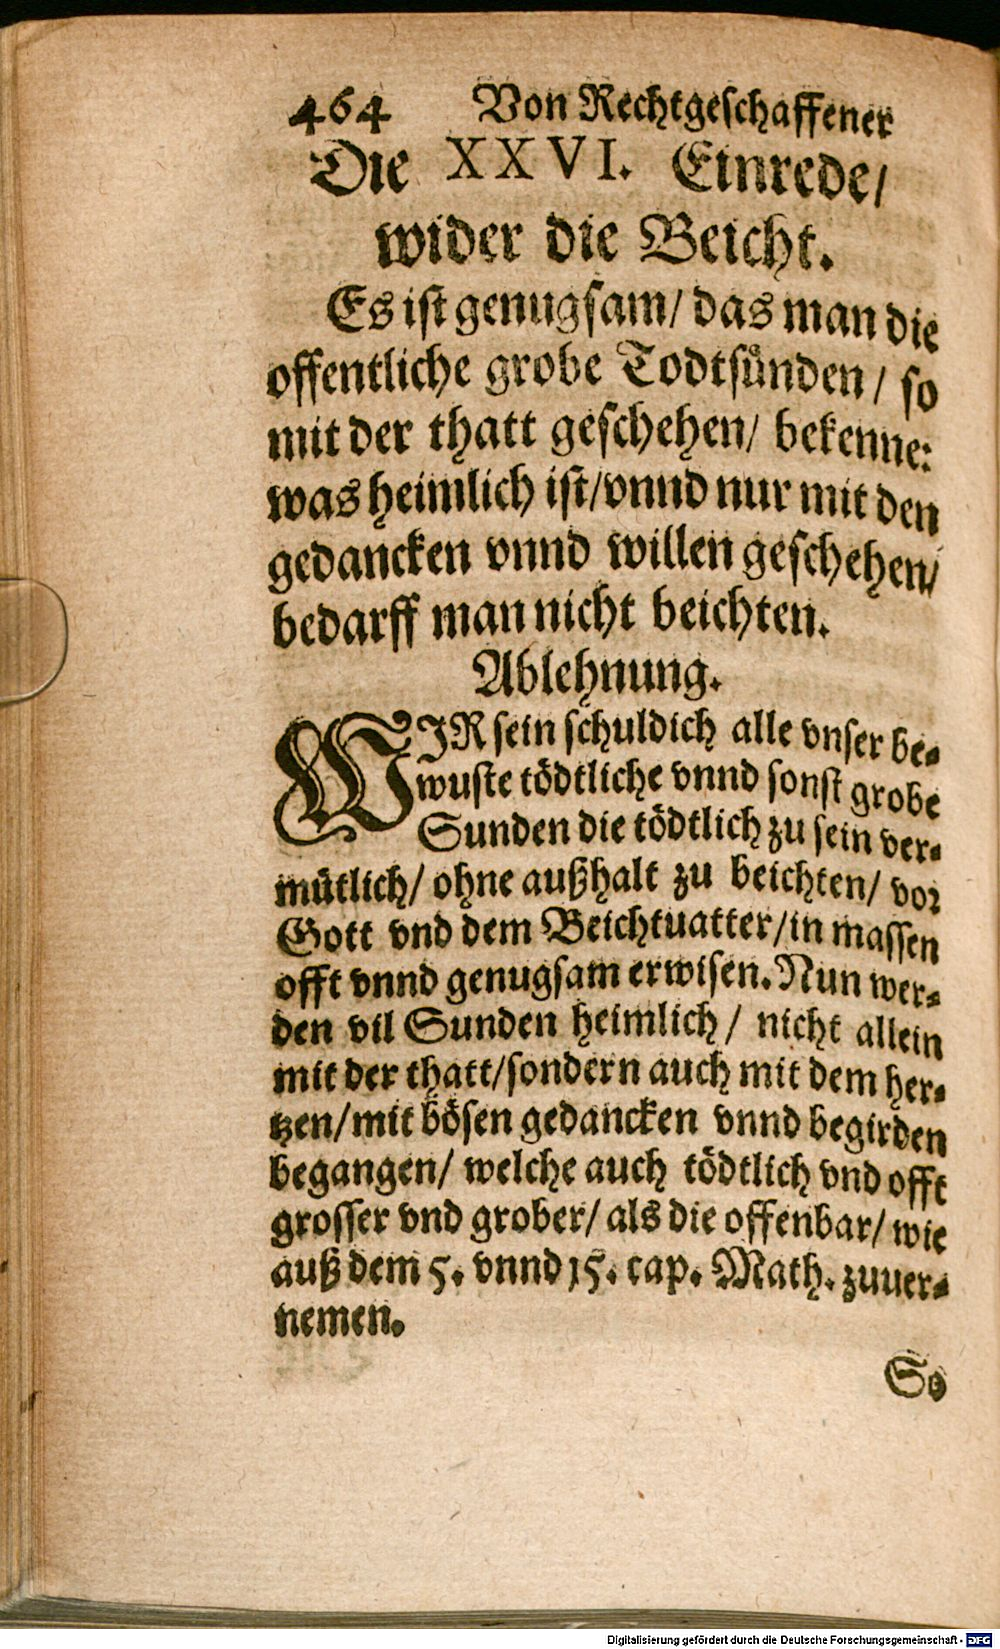 464 Von Rechtgeschaffener
Die XXVI. Einrede/
wider die Beicht.
Es ist genugsam/ das man die
offentliche grobe Todtsünden / so
mit der thatt geschehen/ bekenne:
was heimlich ist/vnnd nur mit den
gedancken vnnd willen geschehen/
bedarff man nicht beichten.
Ablehnung.
WIR sein schuldich alle vnser be-
wuste tödtliche vnnd sonst grobe
Sunden die tödtlich zu sein ver-
mütlich/ ohne außhalt zu beichten/ vor
Gott vnd dem Beichtuatter/in massen
offt vnnd genugsam erwisen. Nun wer-
den vil Sunden heimlich / nicht allein
mit der thatt/sondern auch mit dem her-
tzen/mit bösen gedancken vnnd begirden
begangen/ welche auch tödtlich vnd offt
grosser vnd grober/ als die offenbar/ wie
auß dem 5. vnnd 15. cap. Math. zuuer-
nemen.
So
Digitalisierung gefördert durch die Deutsche Forschungsgemeinschaft - DFG